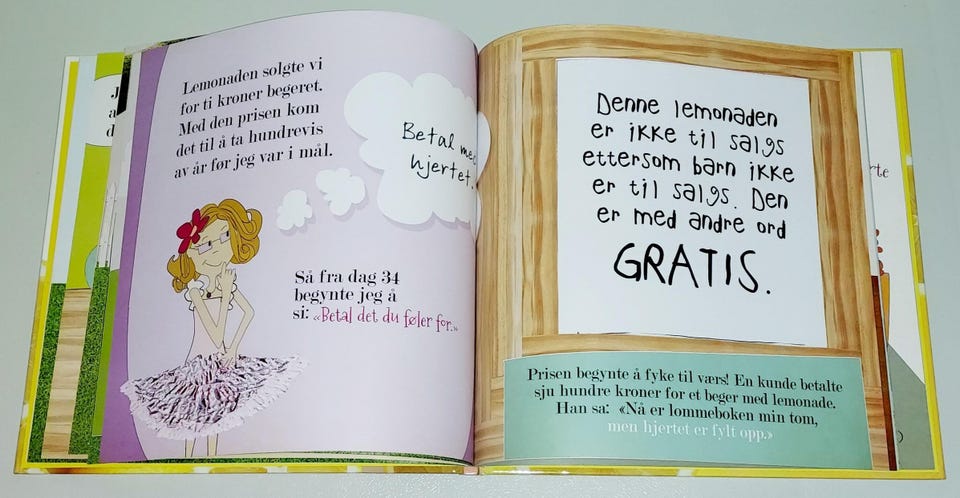 Lemonaden solgte vi
for ti kroner begeret.
Med den prisen kom
det til å ta hundrevis
av år før jeg var i mål.
Betal
hjertet.
Så fra dag 34
begynte jeg å
si: «Betal det du føler for.»
Denne lemonaden
er ikke til salgs
ettersom barn ikke
er til salgs. Den
er med andre ord
GRATIS.
Prisen begynte å fyke til værs! En kunde betalte
sju hundre kroner for et beger med lemonade.
Han sa: «Nå er lommeboken min tom,
men hjertet er fylt opp.»